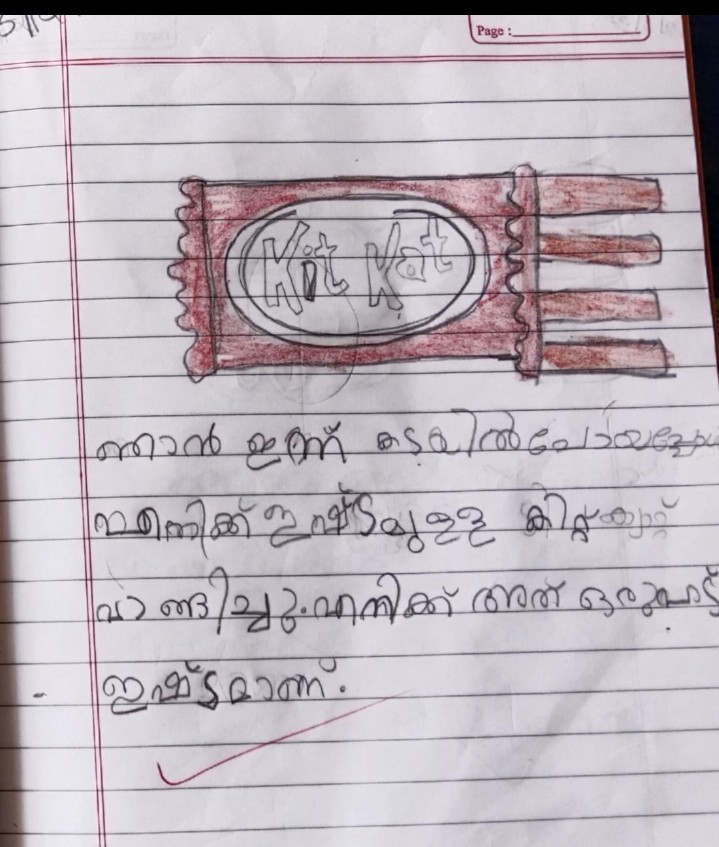 Page :
Kit Kat
ഞാൻ ഇന്ന് കടയിൽ പോയപ്പോൾ
എനിക്ക് ഇഷ്ടമുള്ള കിറ്റ്കാറ്റ്
വാങ്ങിച്ചു. എനിക്ക് അത് ഒരുപാട്
ഇഷ്ടമാണ്.